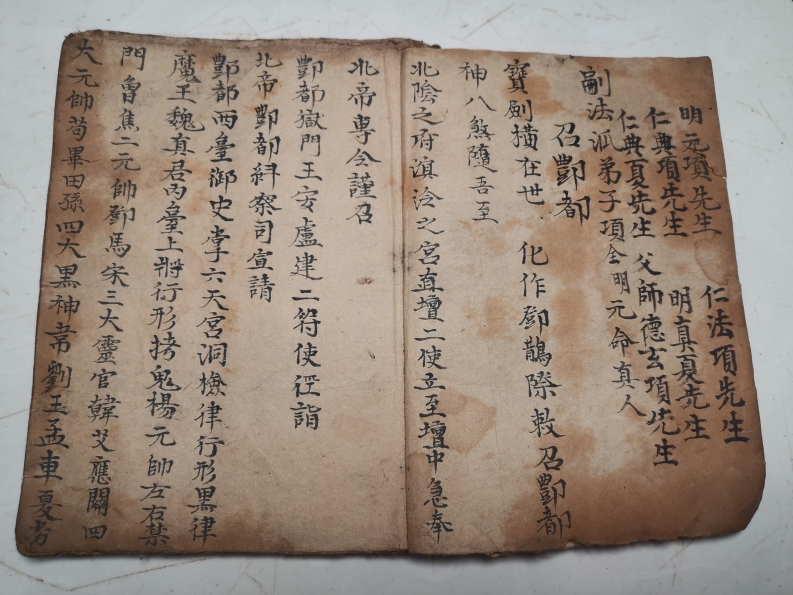 明元項先生
仁法項先生
仁典項先生
明真夏先生
仁典夏先生
父師德玄項先生
嗣法派弟子項全明元命真人
召酆都
寶劍橫在世 化作鄧鵲際敕召酆都
神八煞隨吾至
北陰之府滇泠之宮直壇二使立至壇中急奉
北帝專令謹召
酆都獄門王安盧建二符使徑詣
北帝酆都糾察司宣請
酆都西臺御史掌六天宮洞檢律行形黑律
魔王魏真君丙臺上將行形拷鬼楊元帥左右禁
門魯焦二元帥鄧馬宋三大靈官韓艾應關四
大元帥苟畢田孫四大黑神常劉王孟車夏